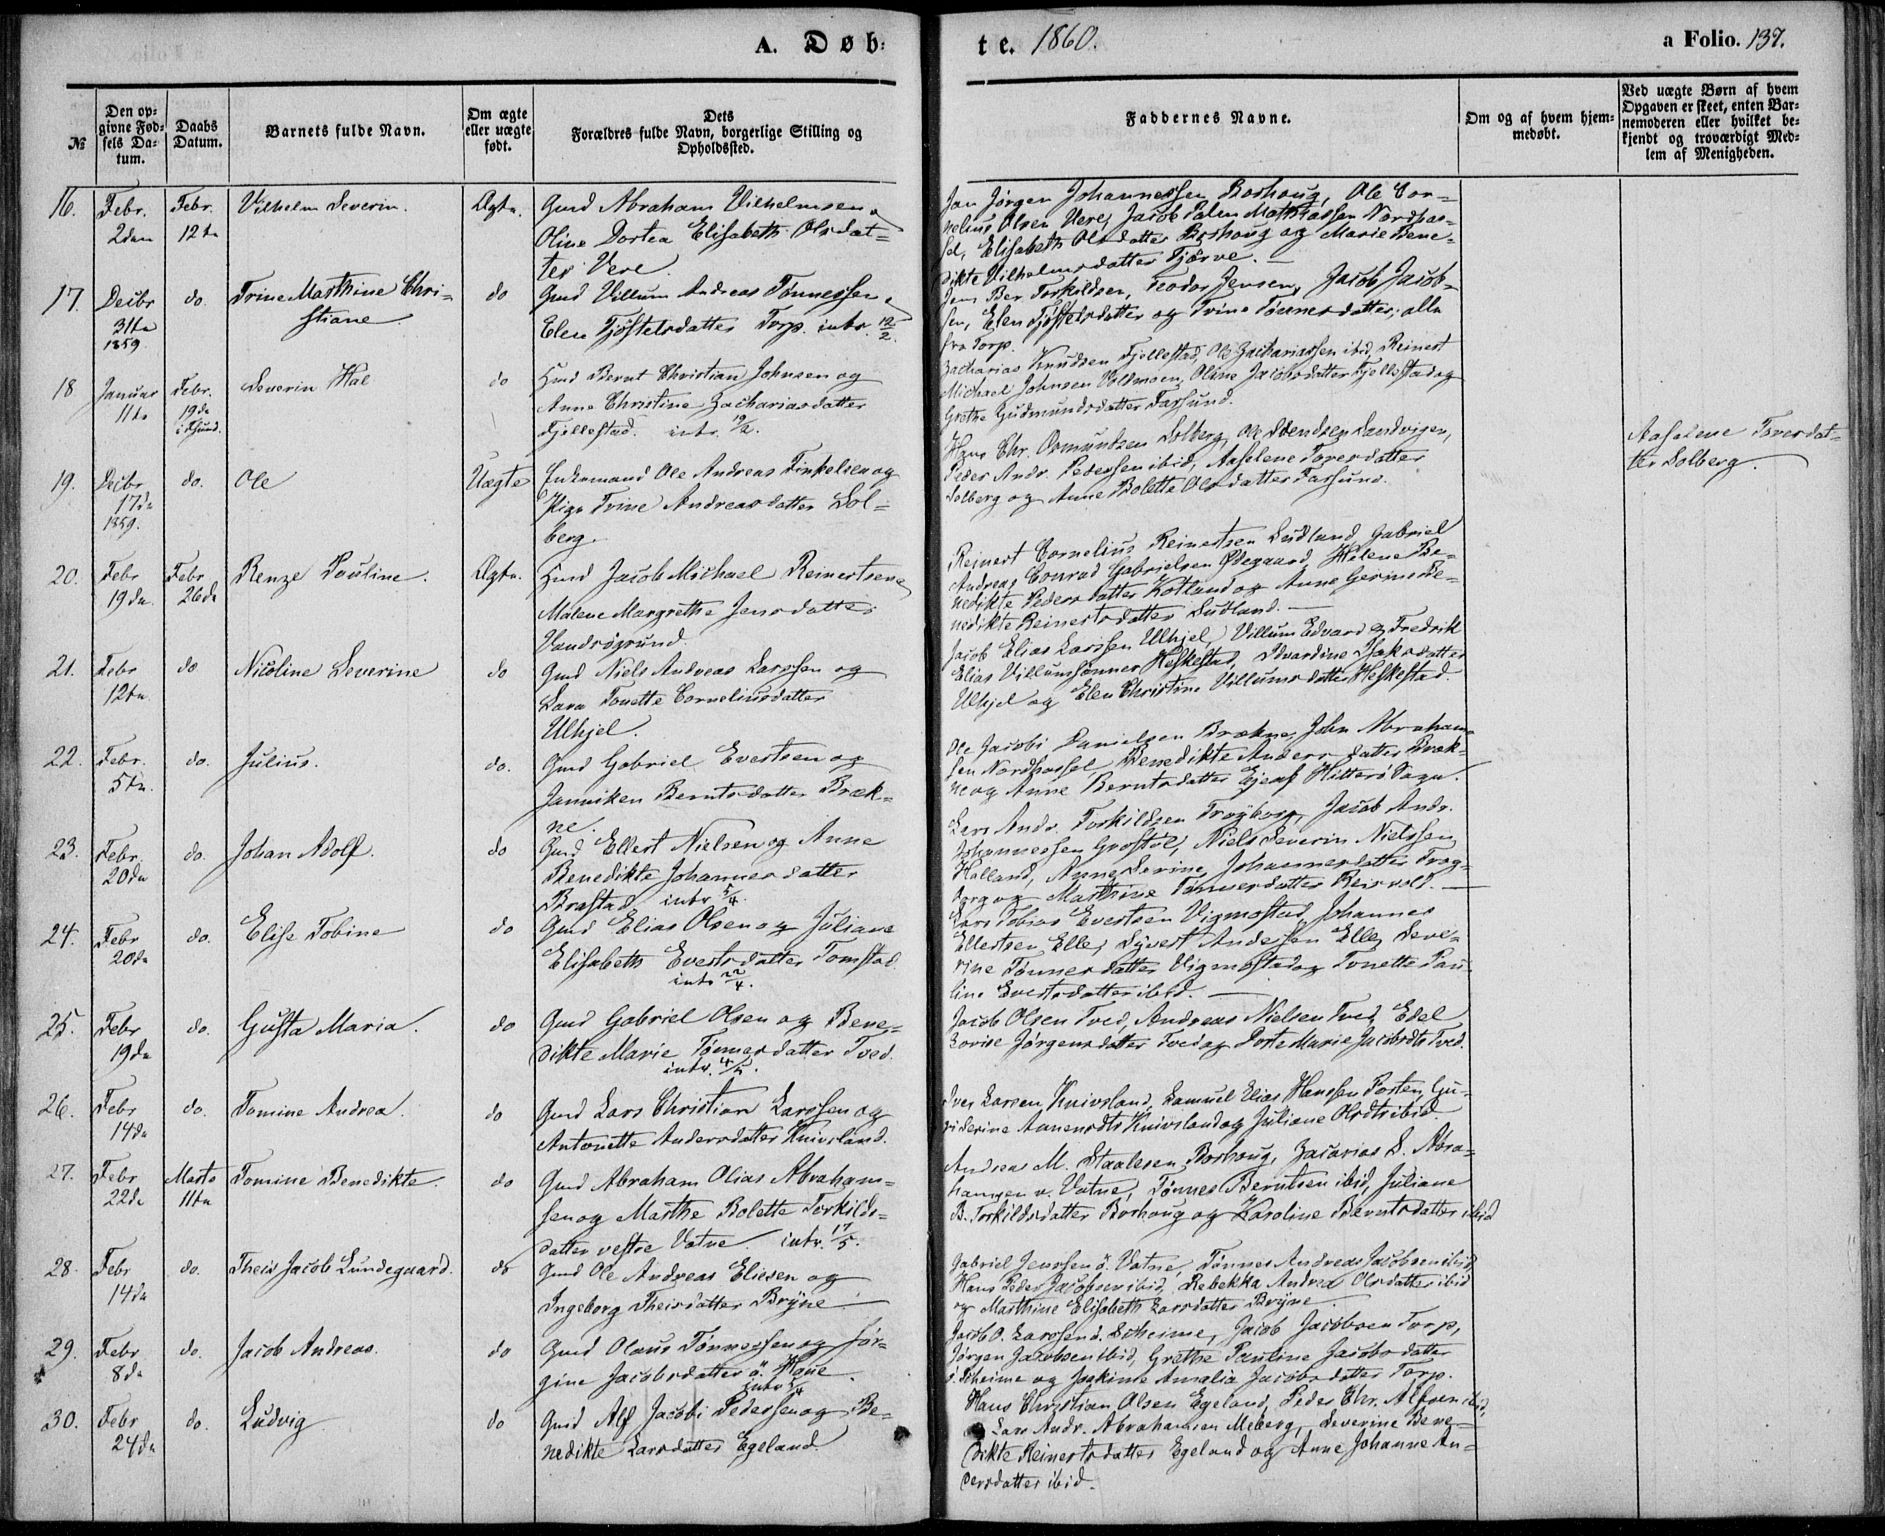 A. Døb:
te. 1860.
a Folio. 137.
№
Den op-
givne Fød-
sels Da-
tum.
Daabs
Datum.
Barnets fulde Navn.
Om ægte
eller uægte
født.
Dets
Forældres fulde Navn, borgerlige Stilling og
Opholdssted.
Faddernes Navne.
Om og af hvem hjem-
medøbt.
Ved uægte Børn af hvem
Opgaven er skeet, enten Bar-
nemoderen eller hvilket be-
kjendt og troværdigt Med-
lem af Menigheden.
16. Febr. 2den
Febr. 12te
Vilhelm Severin.
Ægte.
Gmd Abraham Vilhelmsen og
Oline Dortea Elisabeth Olsdat-
ter Vere.
Jan Jørgen Johannessen Borhoug, Ole Cor-
nelius Olsen Vere, Jacob Palm Mathiassen Nordhas-
sel, Elisabeth Olsdatter Borhoug og Marie Bene-
dikte Vilhelmsdatter Tjørve.
17. Decbr 31te 1859
do.
Trine Marthine Chri-
stiane
do
Gmd Villum Andreas Tønnessen og
Elen Tjøstelsdatter Torp. intr. 12/2.
Jens Ber. Torkildsen, Teodor Jensen, Jacob Jacob-
sen, Elen Tjøstelsdatter og Trine Tønnesdatter, alle
fra Torp.
18 Januar 11te
Febr. 19de i Fsund.
Severin Hal
do
Hmd Bernt Christian Johnsen og
Anne Christine Zachariasdatter
Fjellestad. intr. 19/2.
Zacharias Knudsen Fjellestad, Ole Zachariassen ibid, Reinert
Michael Johnsen Vollmoen, Oline Jacobsdatter Fjellestad og
Grethe Gudmundsdatter Farsund.
19. Decbr 17de 1859.
do.
Ole
Uægte
Enkemand Ole Andreas Terkelsen og
Pige Trine Andreasdatter Sol-
berg.
Hans Chr. Osmundsen Solberg, Ole Svendsen Sandvigen,
Peder Andr. Pedersen ibid, Aaselene Toresdatter
Solberg og Anne Bolette Olsdatter Farsund.
Aaselene Toresdat-
ter Solberg.
20. Febr 19de
Febr 26de
Renze Pauline.
Ægte.
Hmd Jacob Michael Reinertsen og
Malene Margrethe Jensdatter
Vandrøgrund
Reinert Cornelius Reinertsen Sudland, Gabriel
Andreas Conrad Gabrielsen Ødegaard, Helene Be-
nedikte Pedersdatter Kotland og Anne Gerine Be-
nedikte Reinertsdatter Sudland.
21. Febr 12te
do
Nicoline Severine
do
Gmd Niels Andreas Larssen og
Lava Tonette Corneliusdatter
Ulhjel.
Jacob Elias Larssen Ulhjel, Villum Edvard og Fredrik
Elias Villumsønner Heskestad, Edvardine Isaksdatter
Ulhjel og Elen Christine Villumsdatter Heskestad.
22. Febr. 5te
do.
Julius.
do.
Gmd Gabriel Evertsen og
Janniken Berntsdatter Bræk-
ne.
Ole Jacobi Danielsen Brækne, John Abraham-
sen Nordhassel, Benedikte Andersdatter Bræk-
ne og Anne Berntsdatter Hitterø Sogn.
23. Febr. 20de
do.
Johan Adolf.
do
Gmd Ellert Nielsen og Anne
Benedikte Johannesdatter
Brastad intr 5/4.
Lars Andr. Torkildsen Frøyborg, Jacob Andr.
Johannessen Grostøl, Niels Severin Nielssen
Halland, Anne Serine Johannesdatter Frøy-
borg og Marthine Tønnesdatter Reisvold.
24. Febr 20de
do.
Elise Tobine
do
Gmd Elias Olsen og Juliane
Elisabeth Evertsdatter Tomstad.
intr 22/4.
Lars Tobias Evertsen Vigmostad, Johannes
Ellertsen Elle, Syvert Anderssen Elle, Seve-
rine Tønnesdatter Vigmostad og Tonette Pau-
line Evertsdatter ibid.
25. Febr 19de
do.
Gusta Maria.
do
Gmd Gabriel Olsen og Bene-
dikte Marie Tønnesdatter Tved.
intr. 4/5.
Jacob Olsen Tved, Andreas Nielsen Tved, Edel
Lovise Jørgensdatter Tved og Dorte Marie Jacobsdtr Tved.
26. Febr 14de
do.
Tomine Andrea.
do
Gmd Lars Christian Larssen og
Antonette Andersdatter Knivsland.
Iver Larsen Knivsland, Samuel Elias Hanssen Forten, Gu-
riserine Aanensdtr Knivsland og Juliane Olsdtr ibid.
27. Febr 22de
Marts 11te
Tomine Benedikte.
do
Gmd Abraham Olias Abraham-
sen og Marthe Bolette Torkilds-
datter vestre Vatne. intr. 17/5.
Andreas M. Staalesen Borhoug, Zacarias S. Abra-
hamsen v. Vatne, Tønnes Berntsen ibid, Juliane
B. Torkildsdatter Borhoug og Karoline Berntsdatter ibid
28. Febr 14de
do.
Theis Jacob Lundegaard.
do
Gmd Ole Andreas Eliesen og
Ingeborg Theisdatter Bryne.
Gabriel Jenssen ö. Vatne, Tønnes Andreas Jacobsen ibid,
Hans Peder Jacobsen ibid, Rebekka Andrea Olsdatter ibid
og Marthine Elisabeth Larsdatter Bryne.
29. Febr 8de
do.
Jacob Andreas.
do
Gmd Olaus Tønnessen og Jør-
gine Jacobsdatter ö. Haue.
Jacob O. Larssen ö. Skeime, Jacob Jacobsen Torp,
Jørgen Jacobsen ibid, Grethe Pauline Jacobsdatter
ö. Skeime og Joakime Amalia Jacobsdatter Torp.
30. Febr 24de
do.
Ludvig
do
Gmd Alf Jacobi Pedersen og Be-
nedikte Larsdatter Egeland.
Hans Christian Olsen Egeland, Peder Chr. Alfsen ibid,
Lars Andr. Abrahamsen Meberg, Severine Bene-
dikte Reinertsdatter Egeland og Anne Johanne An-
dersdatter ibid.